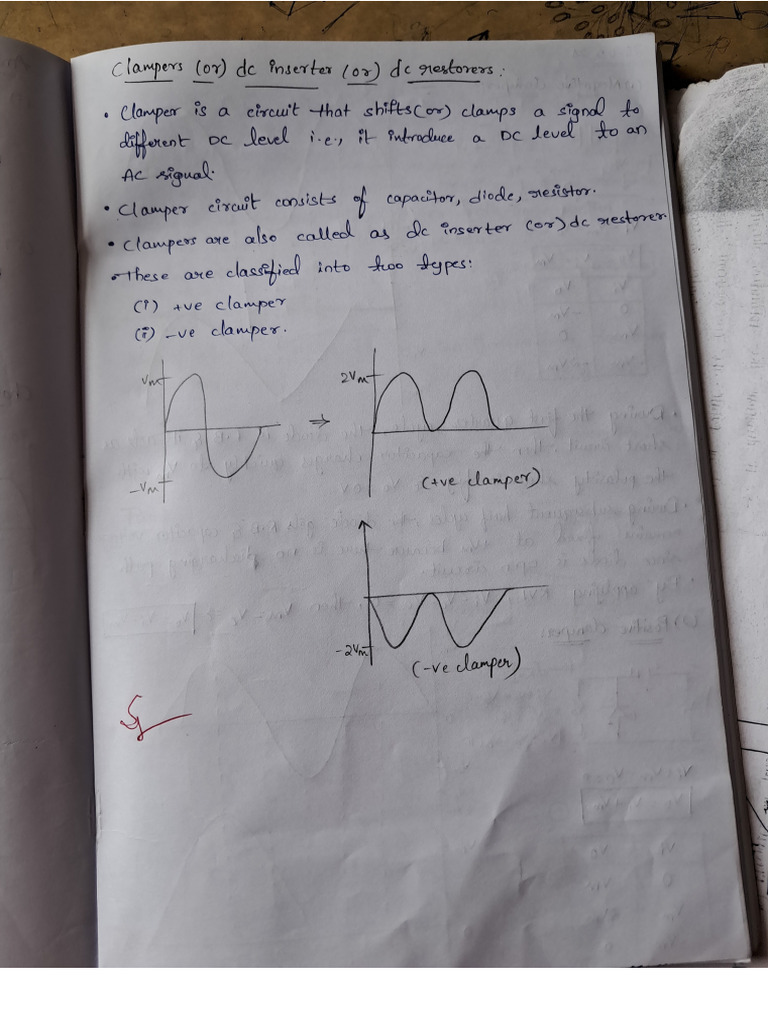 Clampers (or) dc inserter (or) dc restorers:
• Clamper is a circuit that shifts (or) clamps a signal to
different DC level i.e., it introduce a DC level to an
AC signal.
• Clamper circuit consists of capacitor, diode, resistor.
• Clampers are also called as dc inserter (or) dc restorer
• These are classified into two types:
(i) +ve clamper
(ii) -ve clamper.
Vm
2Vm
⇒
-Vm
(+ve clamper)
-2Vm
(-ve clamper)